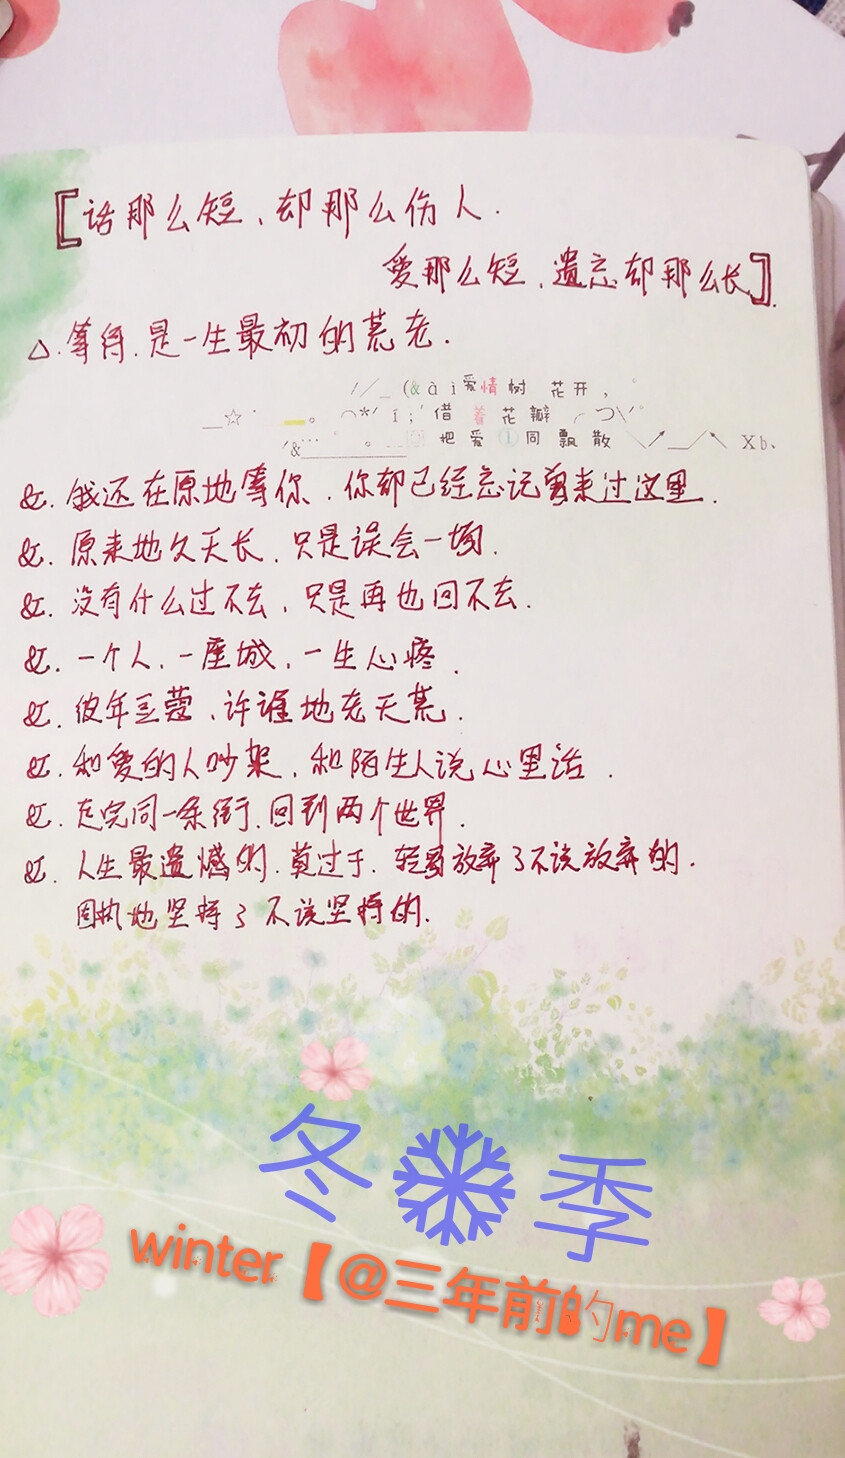 【话那么短、却那么伤人.
爱那么短、遗忘却那么长】.
△.等待.是一生最初的苍老.
(&àì爱情树 花开,
借着花瓣
把爱①同飘散 Xb、
&.我还在原地等你.你却已经忘记曾来过这里.
&.原来地久天长.只是误会一场.
&.没有什么过不去.只是再也回不去.
&.一个人.一座城.一生心疼.
&.彼年豆蔻、许谁地老天荒.
&.和爱的人吵架.和陌生人说心里话.
&.走完同一条街.回到两个世界.
&.人生最遗憾的.莫过于.轻易放弃了不该放弃的.
固执地坚持了不该坚持的.
冬季
winter【@三年前的me】